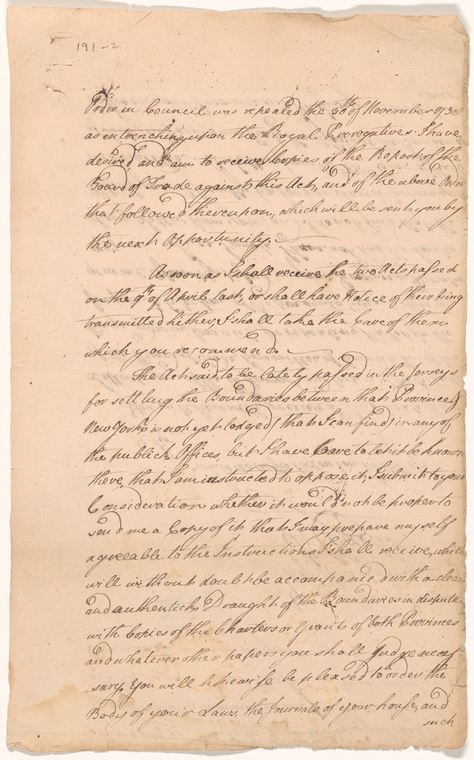 191-2
Order in Council was repealed the 30th of November 1738
as entrenching upon the Royal Prerogative. I have
desired and am to receive Copies of the Report of the
Board of Trade against this Act, and of the above Order
that followed thereupon, which will be sent you by
the next Opportunity.
As soon as I shall receive the two Acts passed
on the 9th of April last, or shall have Notice of their being
transmitted hither, I shall take the Care of them
which you recommend.
The Act said to be lately passed in the Jerseys
for settling the Boundaries between that Province &
New York is not yet lodged that I can find in any of
the publick Offices, but I have leave to let it be known
there, that I am instructed to oppose it. I submit to your
Consideration whether it would not be proper to
send me a Copy of it that I may prepare myself
agreeable to the Instructions I shall receive, which
will without doubt be accompanied with a clear
and authentick Draught of the Boundaries in dispute
with Copies of the Charters or Grants of both Provinces
and whatever other papers you shall Judge neces
sary. You will likewise be pleased to order the
Body of your Laws, the Journals of your house, and
such